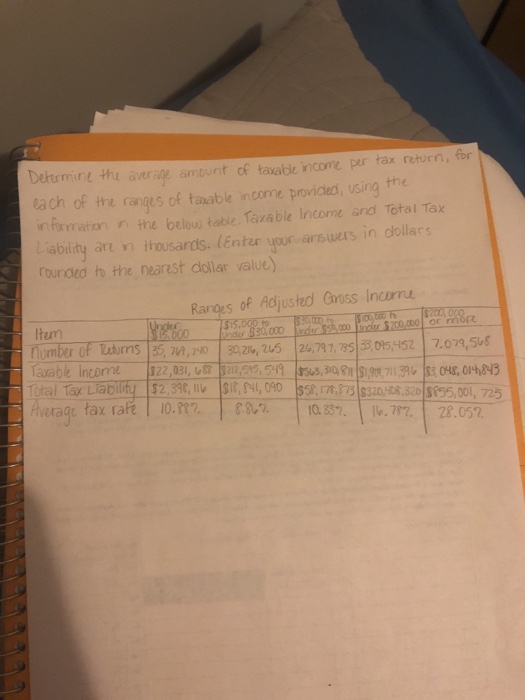 Determine the average amount of taxable income per tax return, for
each of the ranges of taxable income provided, using the
information in the below table. Taxable Income and Total Tax
Liability are in thousands. (Enter your answers in dollars
rounded to the nearest dollar value)
Ranges of Adjusted Gross Income
Item Under $15,000 $15,000 to under $30,000 $30,000 to under $100,000 to under $200,000 $200,000 or more
Number of Returns 35, 30,216,265 26,797,735 33,095,452 7.079,568
Taxable Income $22,031,688
Total Tax Liability $2,398,116 $18,841,090 $58,178,873 $320,408,320 $855,001,725
Average tax rate 10.88% 8.86% 10.33% 16.78% 28.05%